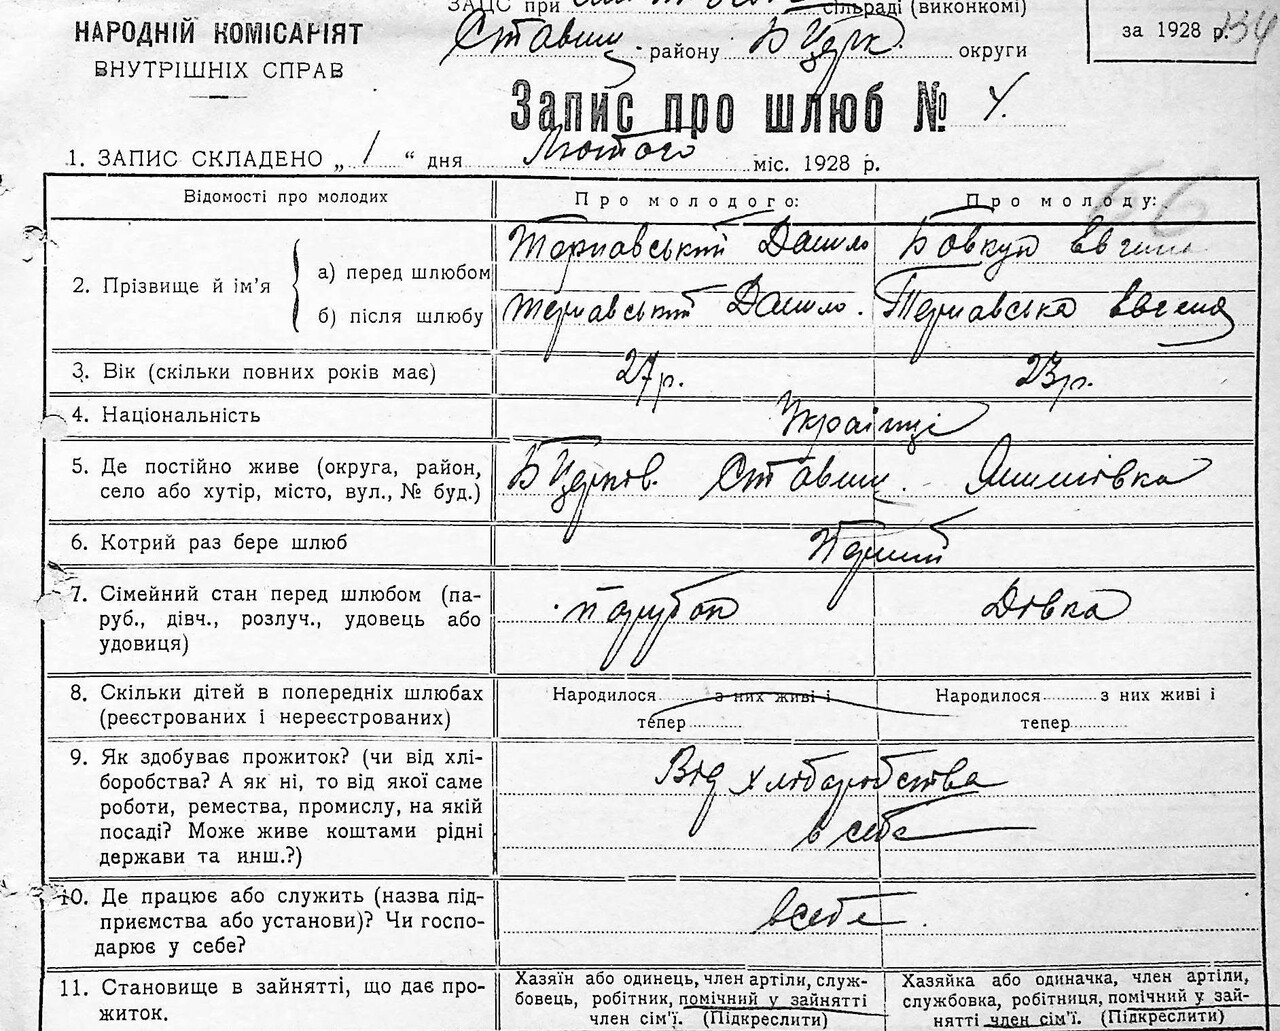 ЗАЦС при сільраді (виконкомі)
НАРОДНІЙ КОМІСАРІЯТ
ВНУТРІШНІХ СПРАВ
Ставищ. району Б Церк. округи
за 1928 р. 134
Запис про шлюб № 4.
1. ЗАПИС СКЛАДЕНО „ 1 “ дня Лютого міс. 1928 р.
66
Відомості про молодих Про молодого: Про молоду:
2. Прізвище й ім’я
а) перед шлюбом Тернавський Данило Бовкун Евгения
б) після шлюбу Тернавський Данило. Тернавська Евгения
3. Вік (скільки повних років має) 27 р. 23 р.
4. Національність Українці
5. Де постійно живе (округа, район, село або хутір, місто, вул., № буд.) Б Церков. Ставищ.
6. Котрий раз бере шлюб Перший
7. Сімейний стан перед шлюбом (па-
руб., дівч., розлуч., удовець або
удовиця) парубок Дівка
8. Скільки дітей в попередніх шлюбах
(реєстрованих і нереєстрованих)
Народилося з них живі і
тепер
Народилося з них живі і
тепер
9. Як здобуває прожиток? (чи від хлі-
боробства? А як ні, то від якої саме
роботи, ремества, промислу, на якій
посаді? Може живе коштами рідні
держави та инш.?)
Від хліборобства
в себе
10. Де працює або служить (назва під-
приємства або установи)? Чи госпо-
дарює у себе?
в себе.
11. Становище в зайнятті, що дає про-
житок.
Хазяїн або одинець, член артіли, служ-
бовець, робітник, помічний у зайнятті
член сім’ї. (Підкреслити)
Хазяйка або одиначка, член артіли,
службовка, робітниця, помічний у зай-
нятті член сім’ї. (Підкреслити)